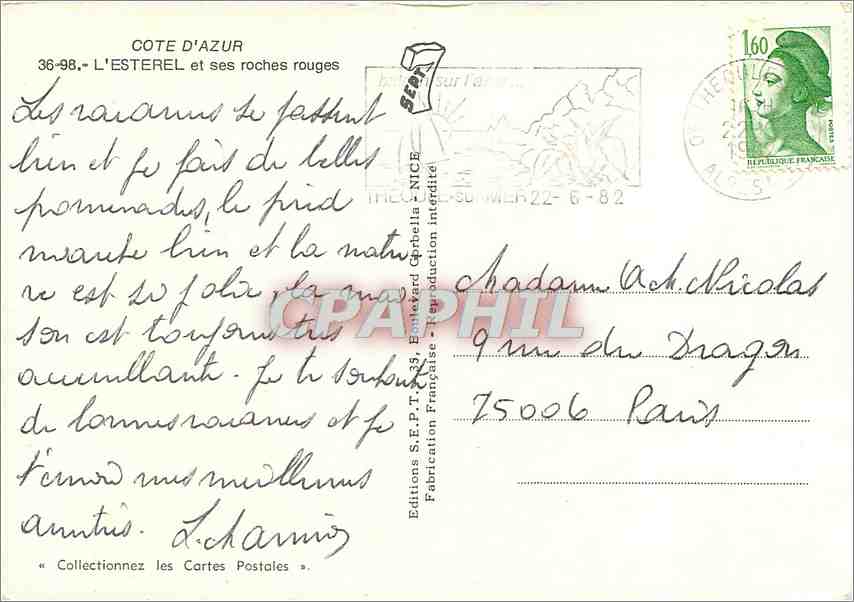 COTE D'AZUR
36-98.- L'ESTEREL et ses roches rouges
Les vacances se passent
bien et je fais de belles
promenades, le pied
marche bien et la natu-
re est si jolie, la mai
son est toujours très
accueillante. Je te souhaite
de bonnes vacances et je
t'envoie mes meilleures
amitiés.
« Collectionnez les Cartes Postales ».
SEPT
sur l'azur...
THEOULE-SUR-MER 22-6-82
Editions S.E.P.T., 35, Boulevard Gorbella - NICE
Fabrication Française - Reproduction interdite
1,60
POSTES
REPUBLIQUE FRANÇAISE
THEOULE
Madame A.M. Nicolas
9 rue du Dragon
75006 Paris
CPAPHIL